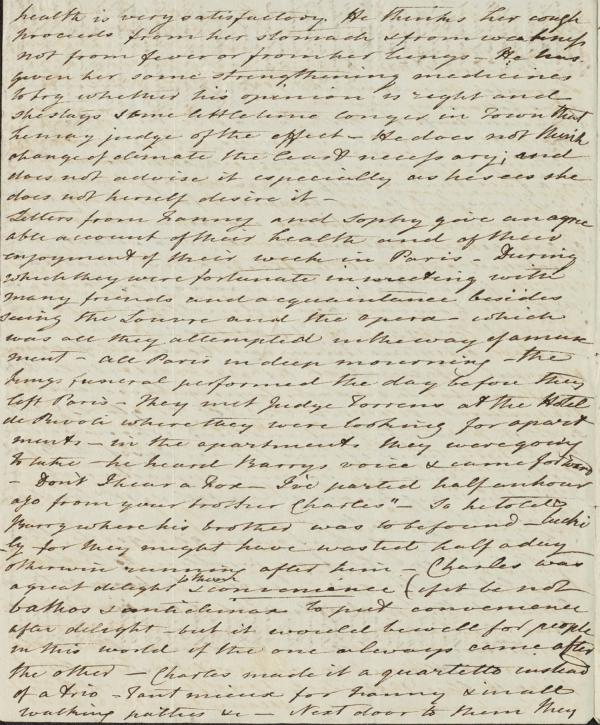 health is very satisfactory. He thinks her cough
proceeds from her stomach & from weakness
not from fever or from her lungs - He has
given her some strengthening medicines
to try whether his opinion is right and
she stays some little time longer in Town that
he may judge of the effect - He does not think
change of climate the least necessary; and
does not advise it especially as he sees she
does not herself desire it -
Letters from Fanny and Sophy give an agree
able account of their health and of their
enjoyment of their week in Paris - During
which they were fortunate in meeting with
many friends and acquaintance besides
seeing the Louvre and the opera - which
was all they attempted in the way of amuse
ment - all Paris in deep mourning - the
kings funeral performed the day before they
left Paris - They met Judge Torrens at the Hotel
de Rivoli where they were looking for apart
ments - in the apartments they were going
to take - he heard Barrys voice & came forward
- Don't I hear a Fox - I've parted half an hour
ago from your brother Charles" - So he told
Barry where his brother was to be found - lucki
ly for they might have wasted half a day
otherwise running after him - Charles was
a great delight to them & convenience (if it be not
bathos & anticlimax to put convenience
after delight but it would be well for people
in this world if the one always came after
the other - Charles made it a quartetto instead
of a trio - Tant mieux for Fanny & in all
walking parties &c - Next door to them they